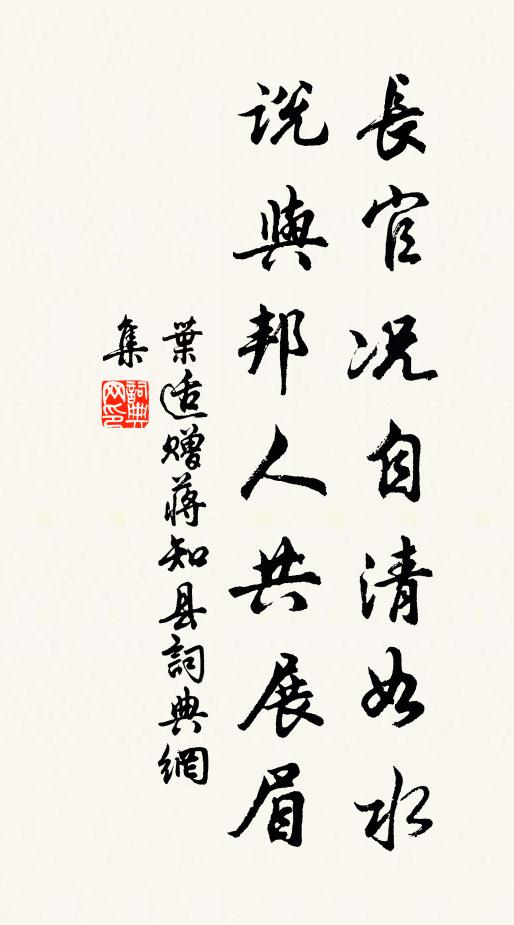 長官况自清如水
説與邦人共展眉
葉适贈蔣知县詞典網
集
詞典
网印